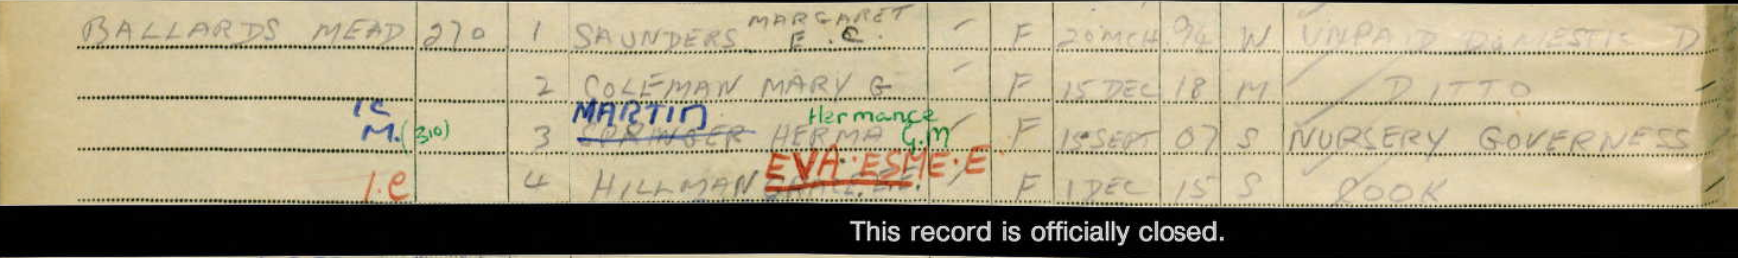 BALLARDS MEAD 270 1 SAUNDERS MARGARET E. C. F 20 MCH 94 W UNPAID DOMESTIC D
2 COLEMAN MARY G F 15 DEC 18 M DITTO
M. (310) 3 MARTIN SPRINGER HERMA Hermance G.M F 15 SEPT 07 S NURSERY GOVERNESS
I.C 4 HILLMAN EVA. ESME. E F 1 DEC 15 S COOK
This record is officially closed.